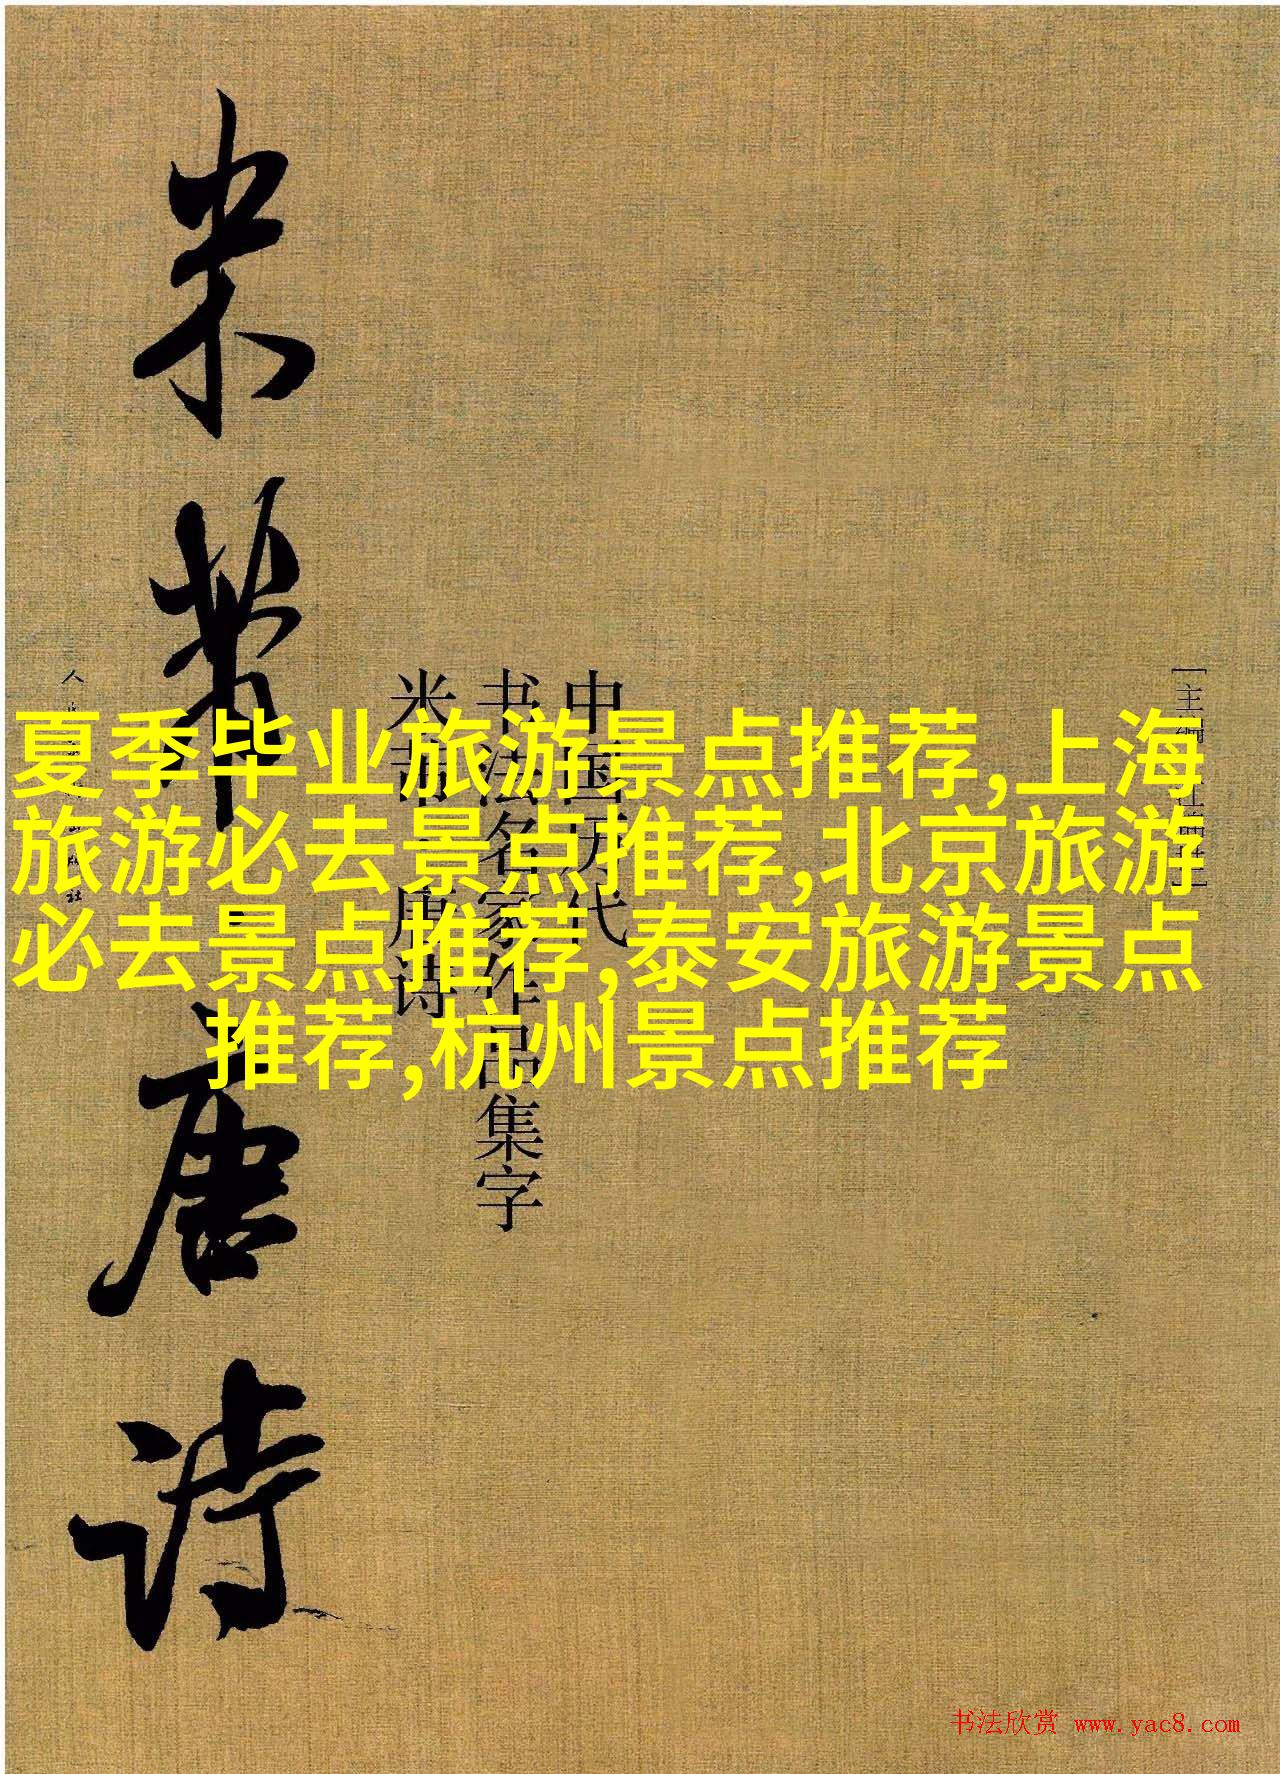 夏季毕业旅游景点推荐,上海
旅游必去景点推荐,北京旅游
必去景点推荐,泰安旅游景点
推荐,杭州景点推荐
[主编
中国历代
书法名家作品集字
米芾·唐诗
米芾唐诗
书法欣赏 www.yac8.com